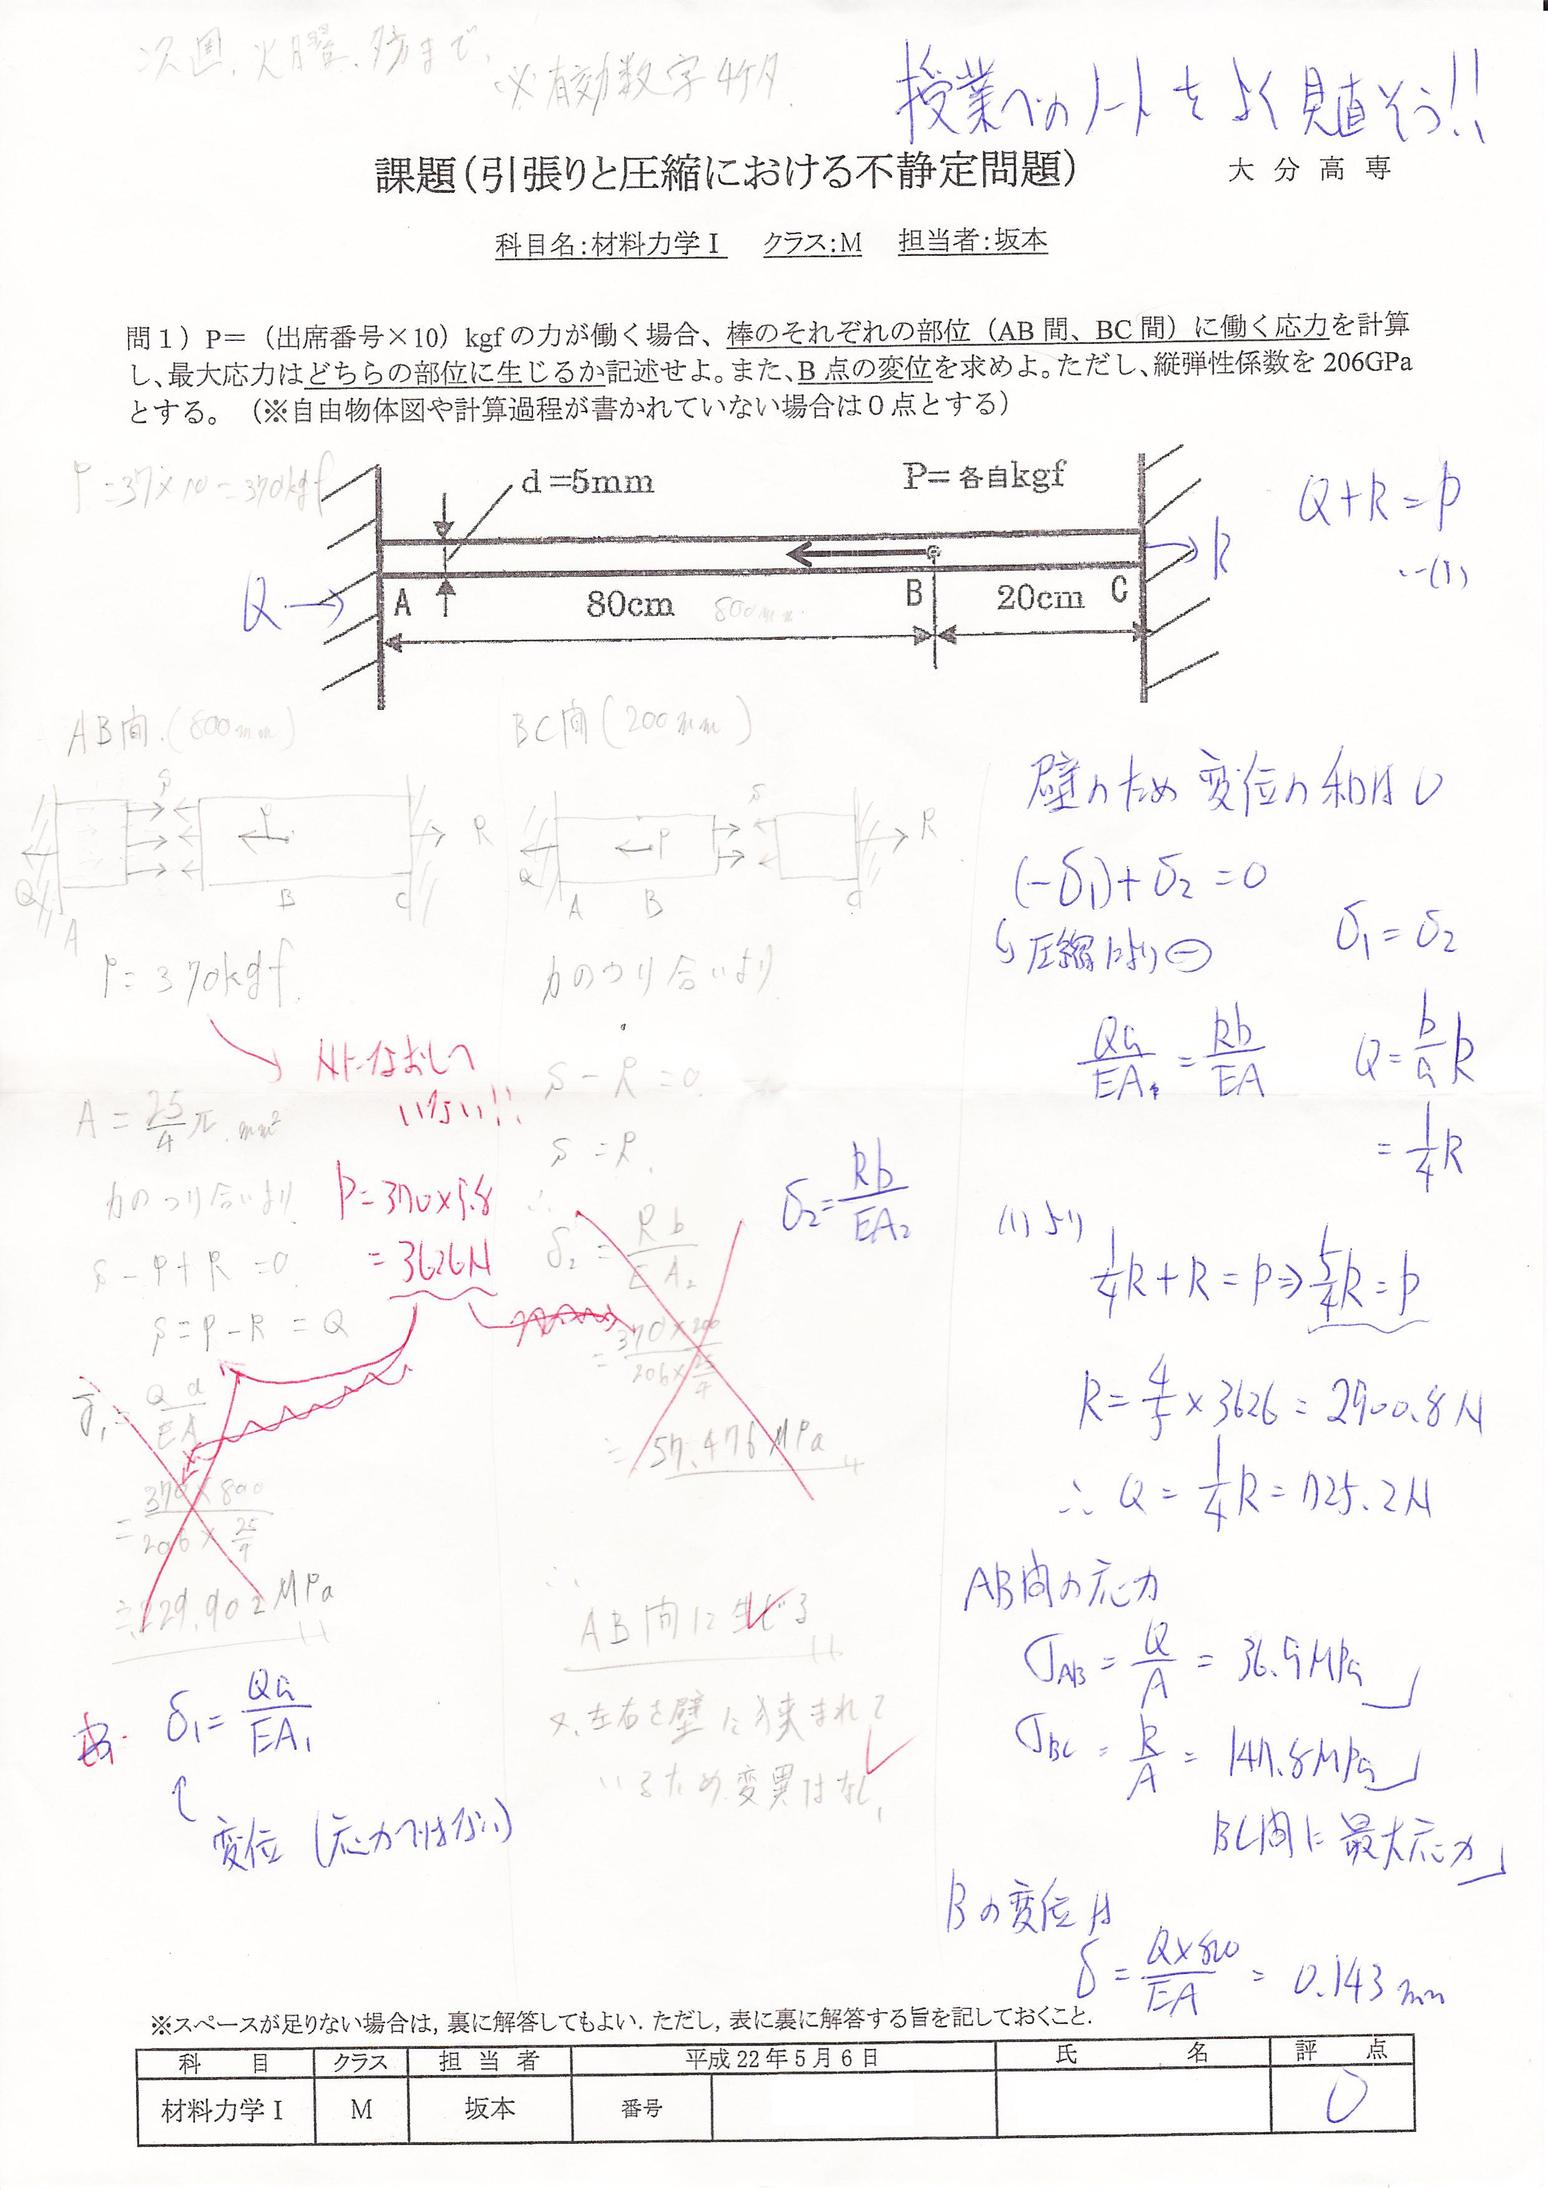 次回、火曜、夕方まで、
※有効数字4ケタ
授業へのノートをよく見直そう!!
課題(引張りと圧縮における不静定問題)
大分高専
科目名:材料力学Ⅰ クラス:M 担当者:坂本
問1)P=(出席番号×10)kgfの力が働く場合、棒のそれぞれの部位(AB間、BC間)に働く応力を計算
し、最大応力はどちらの部位に生じるか記述せよ。また、B点の変位を求めよ。ただし、縦弾性係数を206GPa
とする。(※自由物体図や計算過程が書かれていない場合は0点とする)
P=37×10=370kgf
d=5mm
P=各自kgf
Q+R=P
…(1)
Q
R
A
80cm
800mm
B
20cm
C
AB間(800mm)
S
P
R
Q
A
B
C
P=370kgf
A=25/4 π mm²
力のつり合いより
S-P+R=0
S=P-R=Q
δ₁=Qa/EA
=370×800/206×25/4
≒229.902MPa
Nになおして
いない!!
P=370×9.8
=3626N
δ₁=Qa/EA₁
変位(応力ではない)
BC間(200mm)
S
P
R
Q
A
B
C
力のつり合いより
S-R=0
S=R
∴
δ₂=Rb/EA₂
=370×200/206×25/4
≒57.476MPa
δ₂=Rb/EA₂
∴
AB間に生じる
又、左右を壁に挟まれて
いるため変異はなし
壁のため変位の和は0
(-δ₁)+δ₂=0
↳圧縮により⊖
δ₁=δ₂
Qa/EA=Rb/EA
Q=b/a R
=1/4 R
(1)より
1/4 R+R=P⇒5/4 R=P
R=4/5×3626=2900.8N
∴ Q=1/4 R=725.2N
AB間の応力
σAB=Q/A=36.9MPa
σBC=R/A=147.8MPa
BC間に最大応力
Bの変位は
δ=Q×800/EA=0.143mm
※スペースが足りない場合は,裏に解答してもよい.ただし,表に裏に解答する旨を記しておくこと.
科目 クラス 担当者 平成22年5月6日 氏名 評点
材料力学Ⅰ M 坂本 番号 0